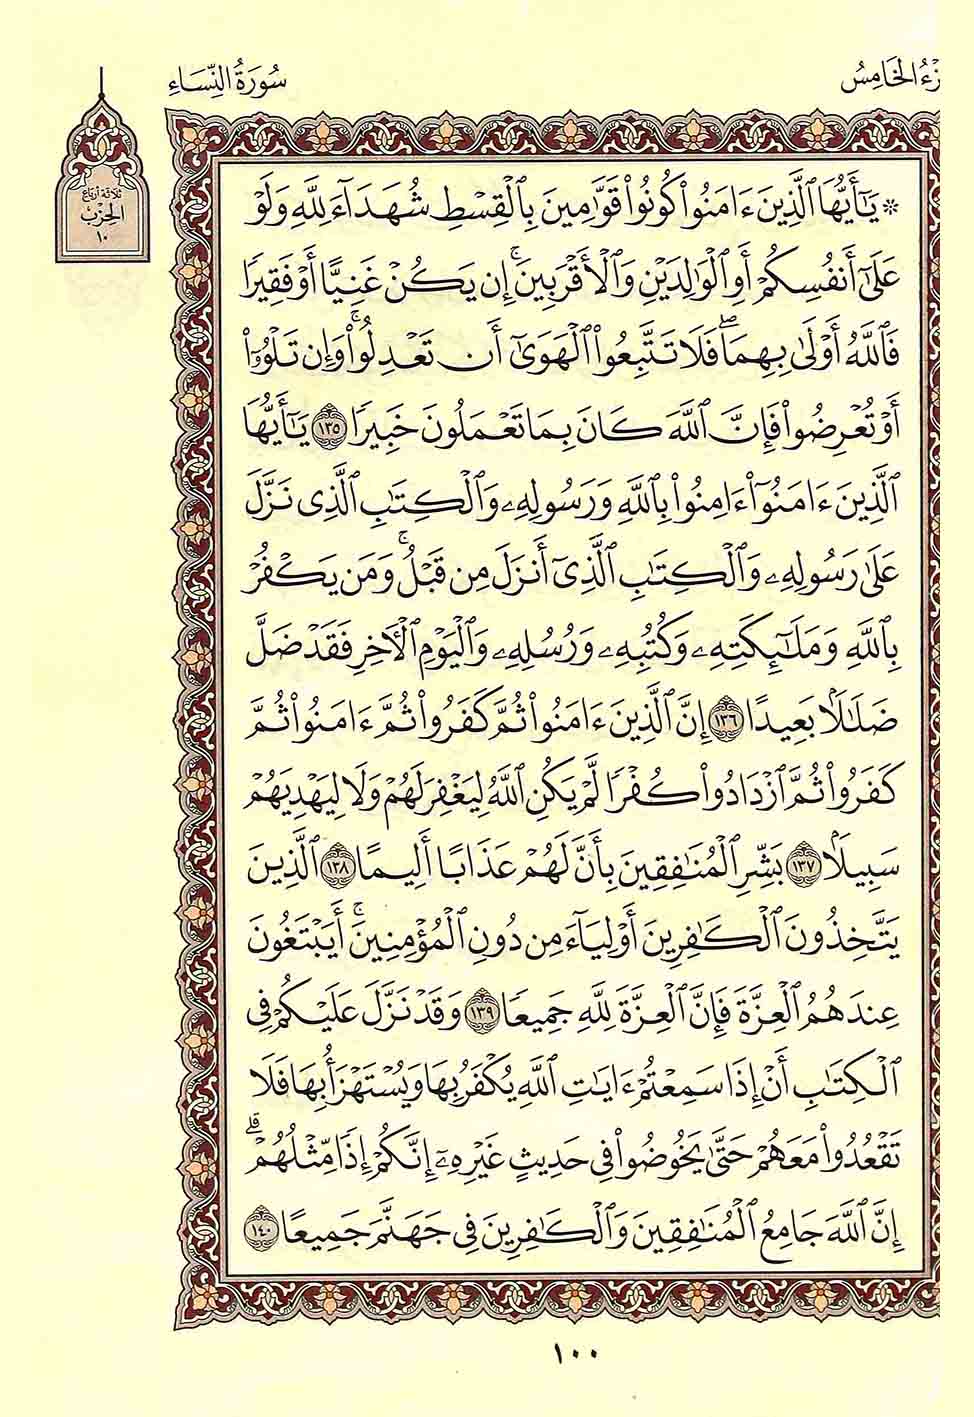 زْءُ الْخَامِسُ
سُورَةُ النِّسَاءِ
ثلاثة أرباع
الحِزْب
١٠
* يَٰٓأَيُّهَا ٱلَّذِينَ ءَامَنُوا۟ كُونُوا۟ قَوَّٰمِينَ بِٱلْقِسْطِ شُهَدَآءَ لِلَّهِ وَلَوْ
عَلَىٰٓ أَنفُسِكُمْ أَوِ ٱلْوَٰلِدَيْنِ وَٱلْأَقْرَبِينَ ۚ إِن يَكُنْ غَنِيًّا أَوْ فَقِيرًا
فَٱللَّهُ أَوْلَىٰ بِهِمَا ۖ فَلَا تَتَّبِعُوا۟ ٱلْهَوَىٰٓ أَن تَعْدِلُوا۟ ۚ وَإِن تَلْوُۥٓا۟
أَوْ تُعْرِضُوا۟ فَإِنَّ ٱللَّهَ كَانَ بِمَا تَعْمَلُونَ خَبِيرًا ١٣٥ يَٰٓأَيُّهَا
ٱلَّذِينَ ءَامَنُوٓا۟ ءَامِنُوا۟ بِٱللَّهِ وَرَسُولِهِۦ وَٱلْكِتَٰبِ ٱلَّذِى نَزَّلَ
عَلَىٰ رَسُولِهِۦ وَٱلْكِتَٰبِ ٱلَّذِىٓ أَنزَلَ مِن قَبْلُ ۚ وَمَن يَكْفُرْ
بِٱللَّهِ وَمَلَٰٓئِكَتِهِۦ وَكُتُبِهِۦ وَرُسُلِهِۦ وَٱلْيَوْمِ ٱلْءَاخِرِ فَقَدْ ضَلَّ
ضَلَٰلًۢا بَعِيدًا ١٣٦ إِنَّ ٱلَّذِينَ ءَامَنُوا۟ ثُمَّ كَفَرُوا۟ ثُمَّ ءَامَنُوا۟ ثُمَّ
كَفَرُوا۟ ثُمَّ ٱزْدَادُوا۟ كُفْرًا لَّمْ يَكُنِ ٱللَّهُ لِيَغْفِرَ لَهُمْ وَلَا لِيَهْدِيَهُمْ
سَبِيلًۢا ١٣٧ بَشِّرِ ٱلْمُنَٰفِقِينَ بِأَنَّ لَهُمْ عَذَابًا أَلِيمًا ١٣٨ ٱلَّذِينَ
يَتَّخِذُونَ ٱلْكَٰفِرِينَ أَوْلِيَآءَ مِن دُونِ ٱلْمُؤْمِنِينَ ۚ أَيَبْتَغُونَ
عِندَهُمُ ٱلْعِزَّةَ فَإِنَّ ٱلْعِزَّةَ لِلَّهِ جَمِيعًا ١٣٩ وَقَدْ نَزَّلَ عَلَيْكُمْ فِى
ٱلْكِتَٰبِ أَنْ إِذَا سَمِعْتُمْ ءَايَٰتِ ٱللَّهِ يُكْفَرُ بِهَا وَيُسْتَهْزَأُ بِهَا فَلَا
تَقْعُدُوا۟ مَعَهُمْ حَتَّىٰ يَخُوضُوا۟ فِى حَدِيثٍ غَيْرِهِۦٓ ۚ إِنَّكُمْ إِذًا مِّثْلُهُمْ ۗ
إِنَّ ٱللَّهَ جَامِعُ ٱلْمُنَٰفِقِينَ وَٱلْكَٰفِرِينَ فِى جَهَنَّمَ جَمِيعًا ١٤٠
١٠٠